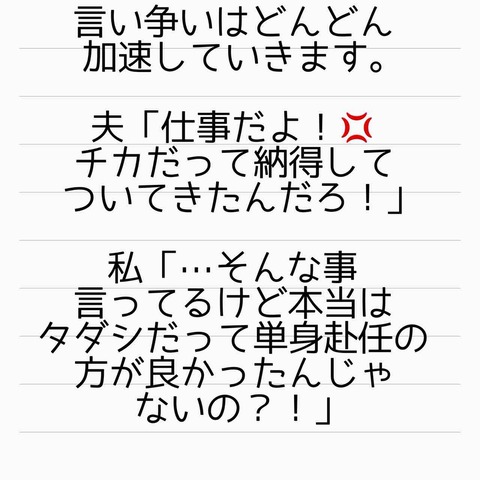 言い争いはどんどん
加速していきます。
夫「仕事だよ！💢
チカだって納得して
ついてきたんだろ！」
私「…そんな事
言ってるけど本当は
タダシだって単身赴任の
方が良かったんじゃ
ないの？！」